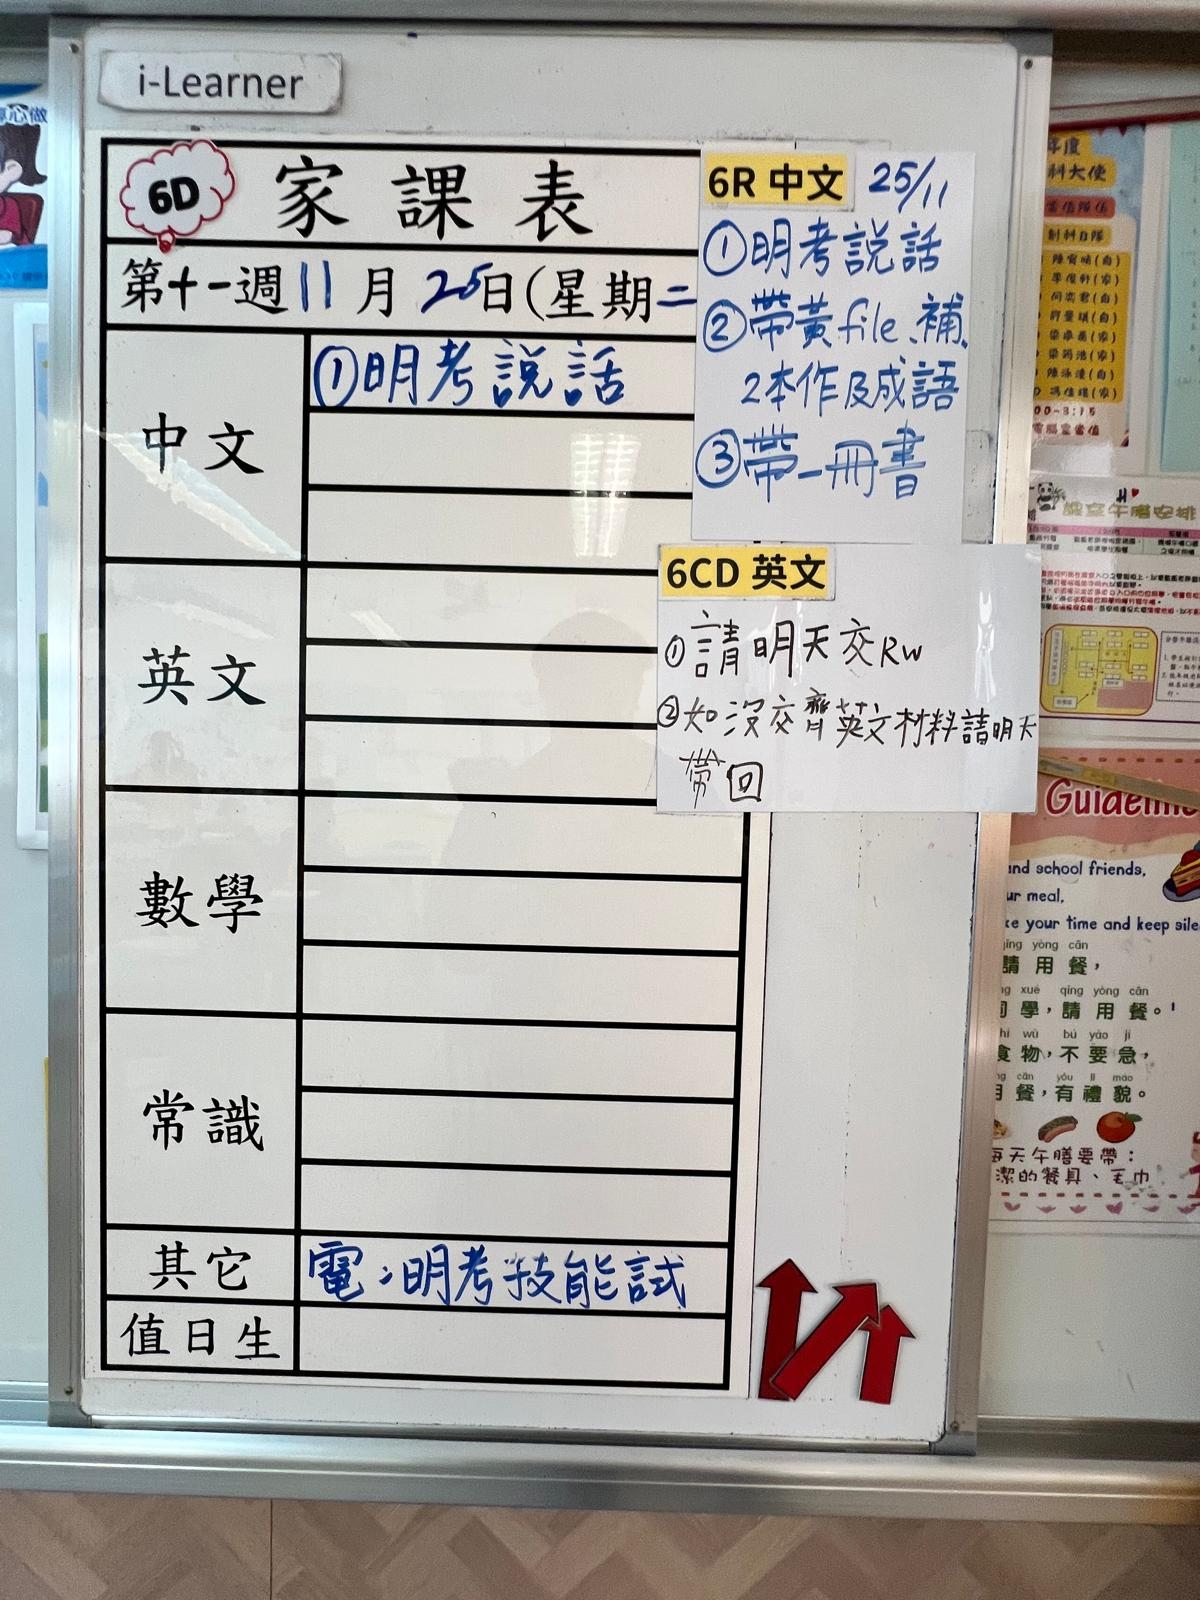 i-Learner
6D 家課表
第十一週 11月 25日(星期二
中文
①明考說話
英文
數學
常識
其它
電:明考技能試
值日生
6R 中文 25/11
①明考説話
②帶黃file、補、
2本作及成語
③帶一冊書
6CD 英文
①請明天交RW
②如沒交齊英文材料請明天
帶回
年度
科大使
創科日隊
00-3:15
Guideline
and school friends,
ur meal,
ke your time and keep sile
qǐng yòng cān
請用餐，
xué qǐng yòng cān
同學，請用餐。
wù bú yào jí
食物，不要急，
cān yǒu lǐ mào
用餐，有禮貌。
每天午膳要帶：
潔的餐具、毛巾